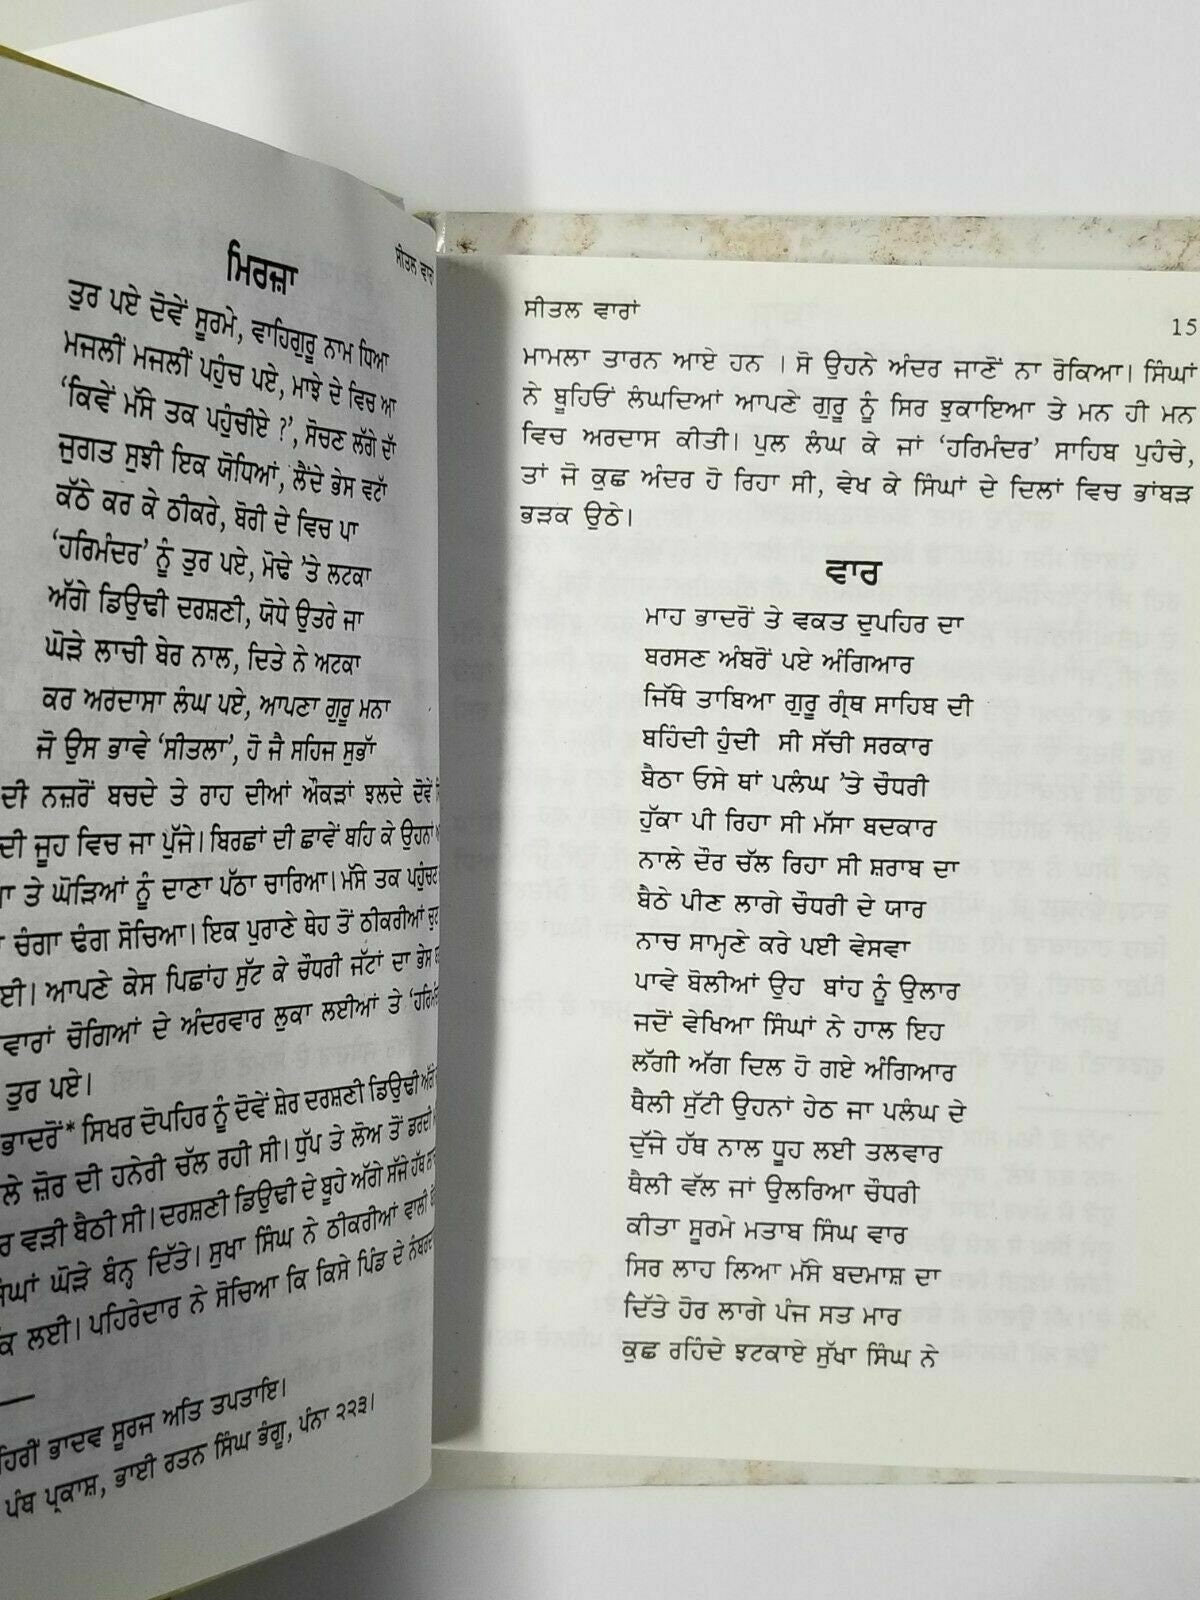 ਸੀਤਲ ਵਾਰਾਂ
ਮਿਰਜ਼ਾ
ਤੁਰ ਪਏ ਦੋਵੇਂ ਸੂਰਮੇ, ਵਾਹਿਗੁਰੂ ਨਾਮ ਧਿਆ
ਮਜਲੀਂ ਮਜਲੀਂ ਪਹੁੰਚ ਪਏ, ਮਾਝੇ ਦੇ ਵਿਚ ਆ
‘ਕਿਵੇਂ ਮੱਸੇ ਤਕ ਪਹੁੰਚੀਏ ?’, ਸੋਚਣ ਲੱਗੇ ਦਾੱ
ਜੁਗਤ ਸੁਝੀ ਇਕ ਯੋਧਿਆਂ, ਲੈਂਦੇ ਭੇਸ ਵਟਾੱ
ਕੱਠੇ ਕਰ ਕੇ ਠੀਕਰੇ, ਬੋਰੀ ਦੇ ਵਿਚ ਪਾ
‘ਹਰਿਮੰਦਰ’ ਨੂੰ ਤੁਰ ਪਏ, ਮੋਢੇ ’ਤੇ ਲਟਕਾ
ਅੱਗੇ ਡਿਉਢੀ ਦਰਸ਼ਣੀ, ਯੋਧੇ ਉਤਰੇ ਜਾ
ਘੋੜੇ ਲਾਚੀ ਬੇਰ ਨਾਲ, ਦਿਤੇ ਨੇ ਅਟਕਾ
ਕਰ ਅਰਦਾਸਾ ਲੰਘ ਪਏ, ਆਪਣਾ ਗੁਰੂ ਮਨਾ
ਜੋ ਉਸ ਭਾਵੇ ‘ਸੀਤਲਾ’, ਹੋ ਜੈ ਸਹਿਜ ਸੁਭਾੱ
ਦੀ ਨਜ਼ਰੋਂ ਬਚਦੇ ਤੇ ਰਾਹ ਦੀਆਂ ਔਕੜਾਂ ਝਲਦੇ ਦੋਵੇਂ
ਦੀ ਜੂਹ ਵਿਚ ਜਾ ਪੁੱਜੇ। ਬਿਰਛਾਂ ਦੀ ਛਾਵੇਂ ਬਹਿ ਕੇ ਉਹਨਾਂ
ਤੇ ਘੋੜਿਆਂ ਨੂੰ ਦਾਣਾ ਪੱਠਾ ਚਾਰਿਆ। ਮੱਸੇ ਤਕ ਪਹੁੰਚਣ
ਚੰਗਾ ਢੰਗ ਸੋਚਿਆ। ਇਕ ਪੁਰਾਣੇ ਥੇਹ ਤੋਂ ਠੀਕਰੀਆਂ
ਆਪਣੇ ਕੇਸ ਪਿਛਾਂਹ ਸੁੱਟ ਕੇ ਚੌਧਰੀ ਜੱਟਾਂ ਦਾ ਭੇਸ
ਚੋਗਿਆਂ ਦੇ ਅੰਦਰਵਾਰ ਲੁਕਾ ਲਈਆਂ ਤੇ
ਤੁਰ ਪਏ।
ਭਾਦਰੋਂ* ਸਿਖਰ ਦੋਪਹਿਰ ਨੂੰ ਦੋਵੇਂ ਸ਼ੇਰ ਦਰਸ਼ਣੀ ਡਿਉਢੀ ਅੱਗੇ
ਜ਼ੋਰ ਦੀ ਹਨੇਰੀ ਚੱਲ ਰਹੀ ਸੀ। ਧੁੱਪ ਤੇ ਲੋਅ ਤੋਂ ਡਰਦੀ
ਵੜੀ ਬੈਠੀ ਸੀ। ਦਰਸ਼ਣੀ ਡਿਉਢੀ ਦੇ ਬੂਹੇ ਅੱਗੇ ਸੱਜੇ ਹੱਥ
ਘੋੜੇ ਬੰਨ੍ਹ ਦਿੱਤੇ। ਸੁਖਾ ਸਿੰਘ ਨੇ ਠੀਕਰੀਆਂ ਵਾਲੀ
ਲਈ। ਪਹਿਰੇਦਾਰ ਨੇ ਸੋਚਿਆ ਕਿ ਕਿਸੇ ਪਿੰਡ ਦੇ
ਭਾਦਵ ਸੂਰਜ ਅਤਿ ਤਪਤਾਇ।
ਪੰਥ ਪ੍ਰਕਾਸ਼, ਭਾਈ ਰਤਨ ਸਿੰਘ ਭੰਗੂ, ਪੰਨਾ ੨੨੩।
ਸੀਤਲ ਵਾਰਾਂ
15
ਮਾਮਲਾ ਤਾਰਨ ਆਏ ਹਨ । ਸੋ ਉਹਨੇ ਅੰਦਰ ਜਾਣੋਂ ਨਾ ਰੋਕਿਆ। ਸਿੰਘਾਂ
ਨੇ ਬੂਹਿਓਂ ਲੰਘਦਿਆਂ ਆਪਣੇ ਗੁਰੂ ਨੂੰ ਸਿਰ ਝੁਕਾਇਆ ਤੇ ਮਨ ਹੀ ਮਨ
ਵਿਚ ਅਰਦਾਸ ਕੀਤੀ। ਪੁਲ ਲੰਘ ਕੇ ਜਾਂ ‘ਹਰਿਮੰਦਰ’ ਸਾਹਿਬ ਪੁਹੰਚੇ,
ਤਾਂ ਜੋ ਕੁਛ ਅੰਦਰ ਹੋ ਰਿਹਾ ਸੀ, ਵੇਖ ਕੇ ਸਿੰਘਾਂ ਦੇ ਦਿਲਾਂ ਵਿਚ ਭਾਂਬੜ
ਭੜਕ ਉਠੇ।
ਵਾਰ
ਮਾਹ ਭਾਦਰੋਂ ਤੇ ਵਕਤ ਦੁਪਹਿਰ ਦਾ
ਬਰਸਣ ਅੰਬਰੋਂ ਪਏ ਅੰਗਿਆਰ
ਜਿੱਥੇ ਤਾਬਿਆ ਗੁਰੂ ਗ੍ਰੰਥ ਸਾਹਿਬ ਦੀ
ਬਹਿੰਦੀ ਹੁੰਦੀ ਸੀ ਸੱਚੀ ਸਰਕਾਰ
ਬੈਠਾ ਓਸੇ ਥਾਂ ਪਲੰਘ ’ਤੇ ਚੌਧਰੀ
ਹੁੱਕਾ ਪੀ ਰਿਹਾ ਸੀ ਮੱਸਾ ਬਦਕਾਰ
ਨਾਲੇ ਦੌਰ ਚੱਲ ਰਿਹਾ ਸੀ ਸ਼ਰਾਬ ਦਾ
ਬੈਠੇ ਪੀਣ ਲਾਗੇ ਚੌਧਰੀ ਦੇ ਯਾਰ
ਨਾਚ ਸਾਮ੍ਹਣੇ ਕਰੇ ਪਈ ਵੇਸਵਾ
ਪਾਵੇ ਬੋਲੀਆਂ ਉਹ ਬਾਂਹ ਨੂੰ ਉਲਾਰ
ਜਦੋਂ ਵੇਖਿਆ ਸਿੰਘਾਂ ਨੇ ਹਾਲ ਇਹ
ਲੱਗੀ ਅੱਗ ਦਿਲ ਹੋ ਗਏ ਅੰਗਿਆਰ
ਥੈਲੀ ਸੁੱਟੀ ਉਹਨਾਂ ਹੇਠ ਜਾ ਪਲੰਘ ਦੇ
ਦੁੱਜੇ ਹੱਥ ਨਾਲ ਧੂਹ ਲਈ ਤਲਵਾਰ
ਥੈਲੀ ਵੱਲ ਜਾਂ ਉਲਰਿਆ ਚੌਧਰੀ
ਕੀਤਾ ਸੂਰਮੇ ਮਤਾਬ ਸਿੰਘ ਵਾਰ
ਸਿਰ ਲਾਹ ਲਿਆ ਮੱਸੇ ਬਦਮਾਸ਼ ਦਾ
ਦਿੱਤੇ ਹੋਰ ਲਾਗੇ ਪੰਜ ਸਤ ਮਾਰ
ਕੁਛ ਰਹਿੰਦੇ ਝਟਕਾਏ ਸੁੱਖਾ ਸਿੰਘ ਨੇ